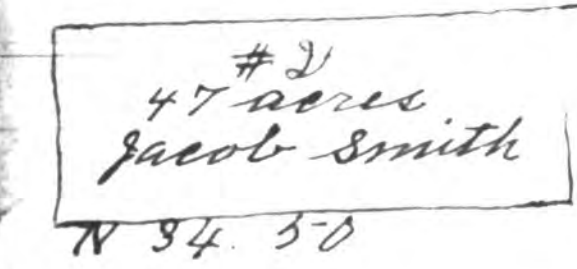 #2
47 acres
Jacob Smith
N 34. 50